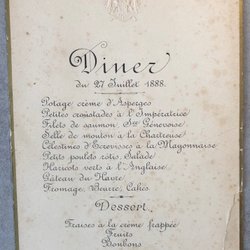 Diner
du 27 Juillet 1888.
Potage crème d'Asperges
Petites croustades à l'Impératrice
Filets de saumon, Sce Génevoise
Selle de mouton à la Chartreuse
Célestines d'Ecrevisses à la Mayonnaise
Petits poulets rotis. Salade
Haricots verts à l'Anglaise
Gâteau du Havre
Fromage, Beurre, Cakes
Dessert
Fraises à la crème frappée
Fruits
Bonbons